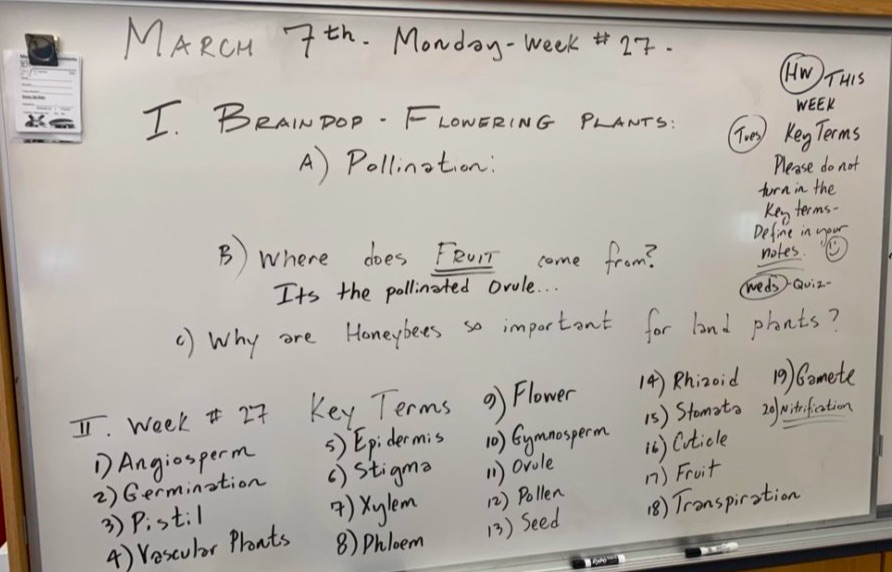 MARCH 7th. Monday-Week # 27.
I. BRAINPOP - FLOWERING PLANTS:
A) Pollination:
B) Where does FRUIT come from?
Its the pollinated Ovule...
c) Why are Honeybees so important for land plants?
HW THIS
WEEK
Tues Key Terms
Please do not
turn in the
Key terms-
Define in your
notes.
Weds-Quiz-
II. Week # 27 Key Terms
1) Angiosperm
2) Germination
3) Pistil
4) Vascular Plants
5) Epidermis
6) Stigma
7) Xylem
8) Phloem
9) Flower
10) Gymnosperm
11) Ovule
12) Pollen
13) Seed
14) Rhizoid
15) Stomata
16) Cuticle
17) Fruit
18) Transpiration
19) Gamete
20) Nitrification